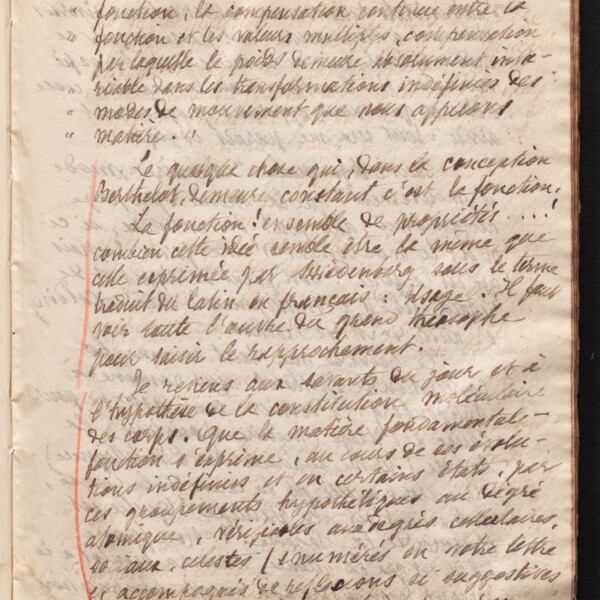 fonction, la compensation continue entre la
fonction et les valeurs multiples, compensation
par laquelle le poids demeure absolument inva-
riable dans les transformations indéfinies des
" modes de mouvement que nous appelons
" matière. "
Le quelque chose qui, dans la conception
Berthelot, demeure constant c'est la fonction.
La fonction! ensemble de propriétés ...!
combien cette idée semble être la même que
celle exprimée par Swedenborg sous le terme
traduit du latin en français : Usage. Il faut
voir toute l'œuvre du grand théosophe
pour saisir le rapprochement.
Je reviens aux savants du jour et à
l'hypothèse de la constitution moléculaire
des corps. Que la matière fondamentale-
fonction s'exprime, au cours de ses évolu-
tions indéfinies et en certains états, par
ces groupements hypothétiques au dégré
atomique, vérifiables aux degrés cellulaires,
aux célestes (énumérés en votre lettre
et accompagnés de réflexions si suggestives